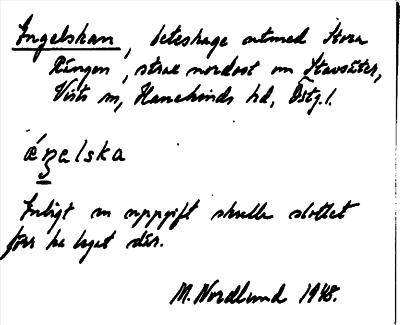 Ingelskan, beteshage utmed Stora
Rängen, strax nordost om Stavsäter,
Vists sn, Hanekinds hd, Östg.l.
ǽŋelska
Enligt en uppgift skulle slottet
förr ha legat där.
M. Nordlund 1948.